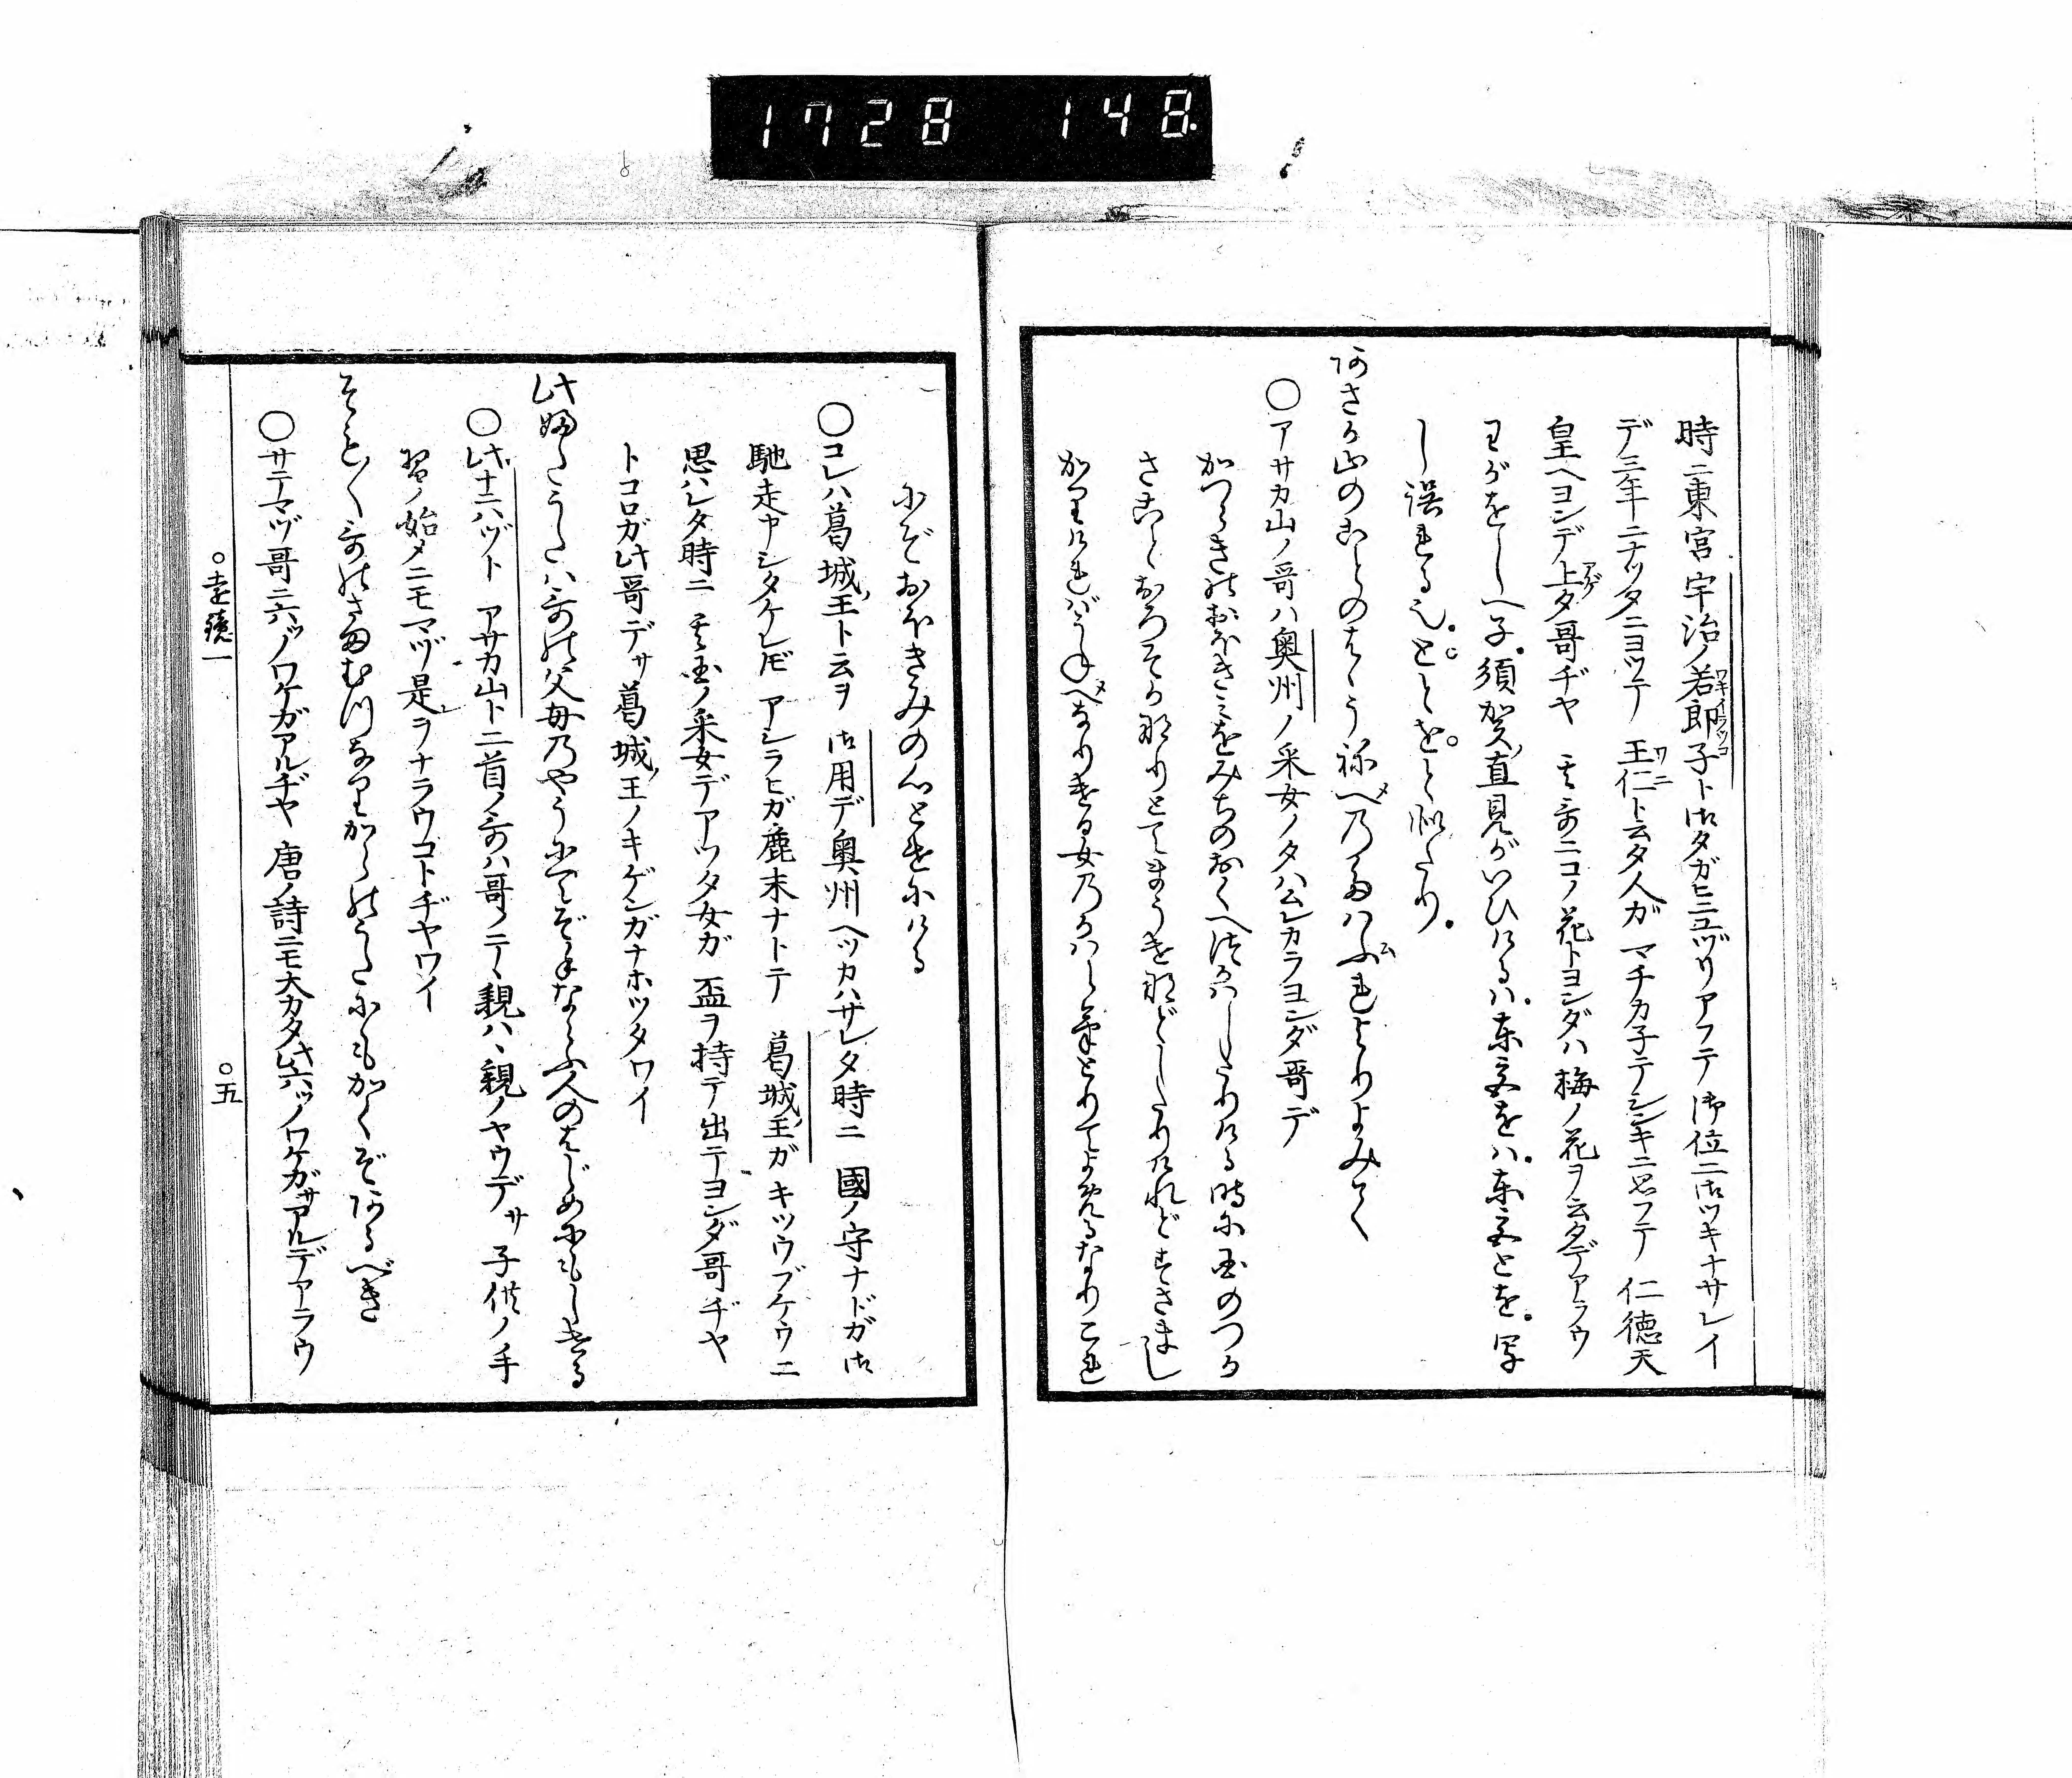 1728 148
時ニ東宮宇治ノ若郎子ト御タガヒニユヅリアフテ御位ニ御ツキナサレイ
ワキイラツコ
デ三年ニナツタニヨツテ王仁ト云タ人ガマチカ子テシンキニ思フテ仁徳天
ワニ
皇ヘヨンデ上タ哥ヂヤ其哥ニコノ花トヨンダハ梅ノ花ヲ云タデアラウ
アゲ
わがをしへ子須賀直見がいひけるハ東宮をハ東宮とを写
し誤れる也ととをと似たり
あさか山のことのはハうねべのたはぶれよりよみて
メ ム
○アサカ山ノ哥ハ奥州ノ采女ノタハムレカラヨンダ哥デ
かつらきのおほきミをみちのおくへつかハしたりける時に国のつか
さことおろそか那りとてまうけ那どしたりけれどすさまし
かりけれバうねべなりける女のかハらけとりてよめるなりこれ
メ
にぞおほきみの心とけにける
○コレハ葛城王ト云ヲ御用デ奥州ヘツカハサレタ時ニ國ノ守ナドガ御
馳走申シタケレドモアシラヒガ麁末ナトテ葛城王ガキツウブケウニ
思ハレタ時ニ其国ノ采女デアツタ女ガ盃ヲ持テ出テヨンダ哥ヂヤ
トコロガ此哥デサ葛城王ノキゲンガナホツタワイ
此ふたうたハ哥の父母乃やうにてぞ手ならふ人のはじめにもしける
○此ナニハヅトアサカ山ト二首ノ哥ハ哥ノテヽ親ハヽ親ノヤウデサ子供ノ手
習ノ始メニモマヅ是ヲナラウコトヂヤワイ
そも〳〵哥のさまむつなりからのうたにもかくぞあるべき
○サテマヅ哥ニ六ツノワケガアルヂヤ唐ノ詩ニモ大カタ此六ツノワケガサアルデアラウ
○遠鏡一
○五